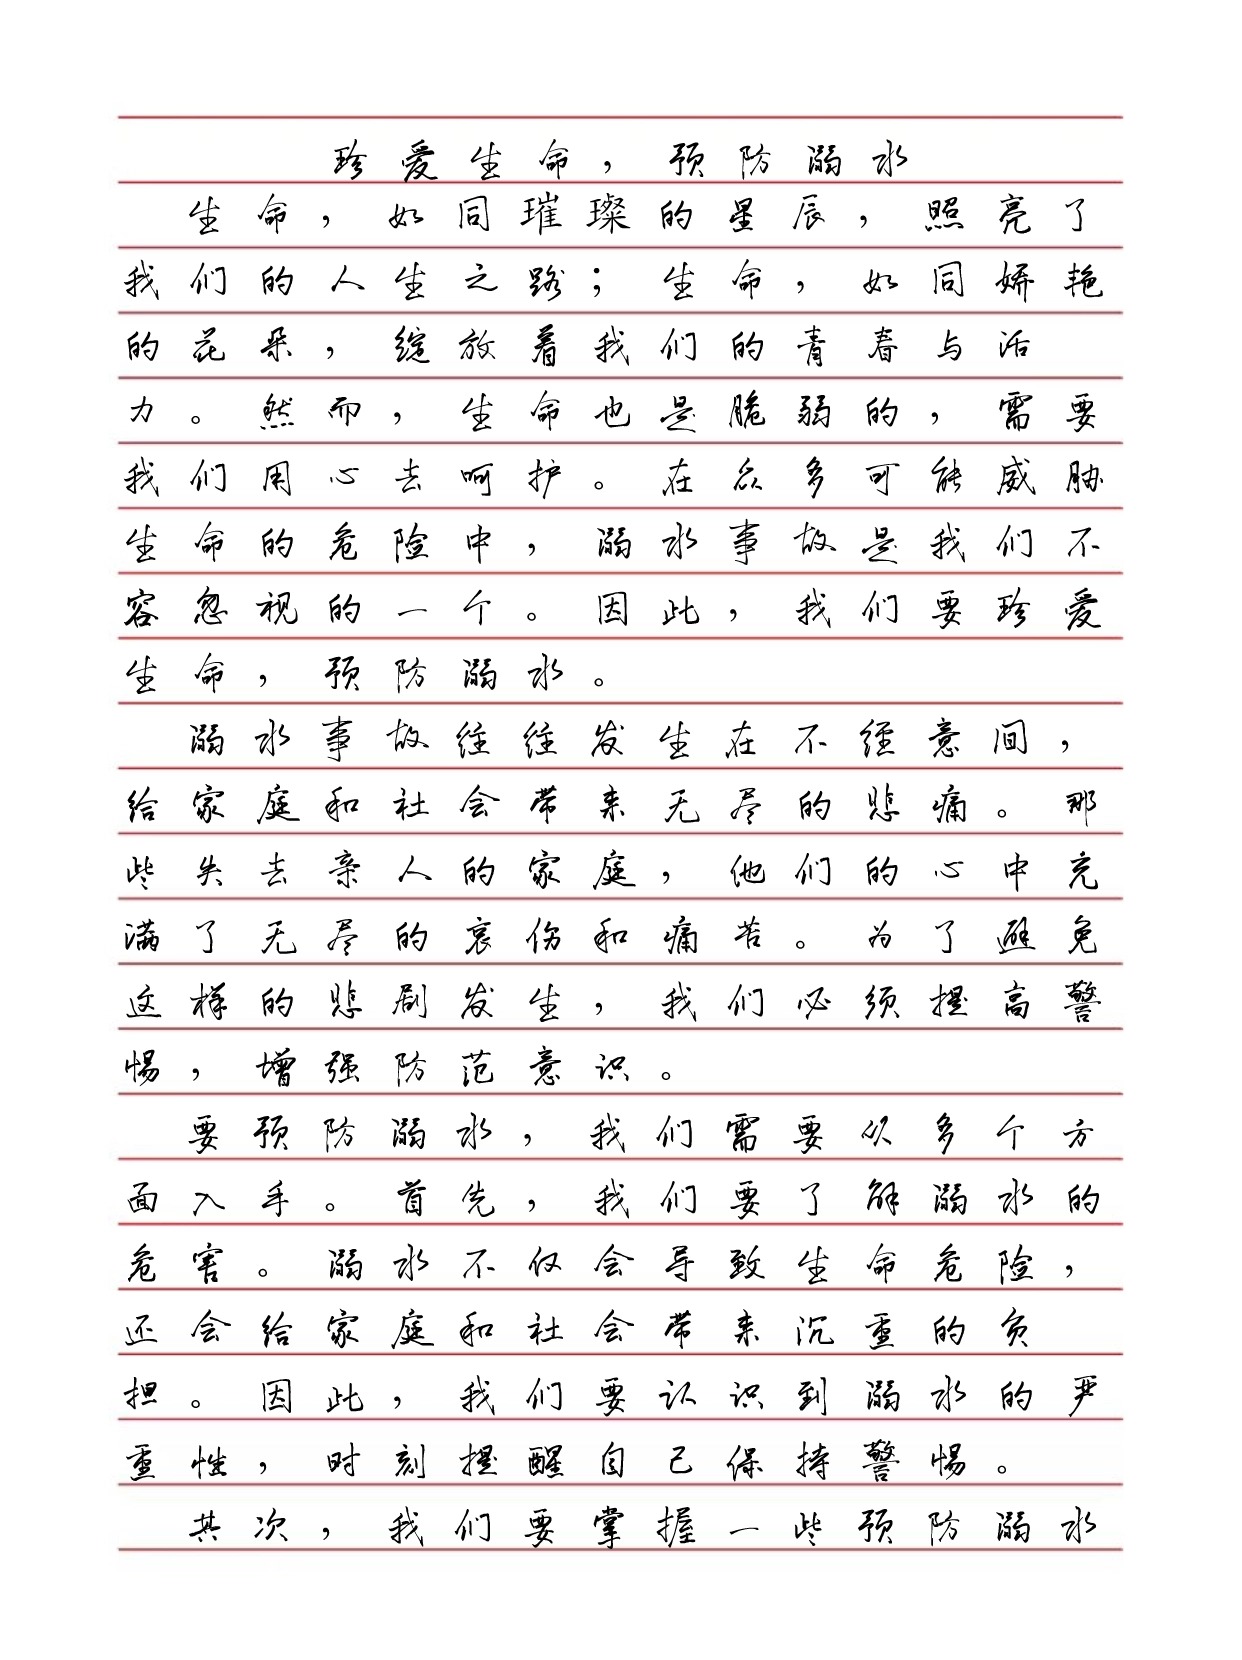 珍爱生命，预防溺水
生命，如同璀璨的星辰，照亮了
我们的人生之路；生命，如同娇艳
的花朵，绽放着我们的青春与活
力。然而，生命也是脆弱的，需要
我们用心去呵护。在众多可能威胁
生命的危险中，溺水事故是我们不
容忽视的一个。因此，我们要珍爱
生命，预防溺水。
溺水事故往往发生在不经意间，
给家庭和社会带来无尽的悲痛。那
些失去亲人的家庭，他们的心中充
满了无尽的哀伤和痛苦。为了避免
这样的悲剧发生，我们必须提高警
惕，增强防范意识。
要预防溺水，我们需要从多个方
面入手。首先，我们要了解溺水的
危害。溺水不仅会导致生命危险，
还会给家庭和社会带来沉重的负
担。因此，我们要认识到溺水的严
重性，时刻提醒自己保持警惕。
其次，我们要掌握一些预防溺水